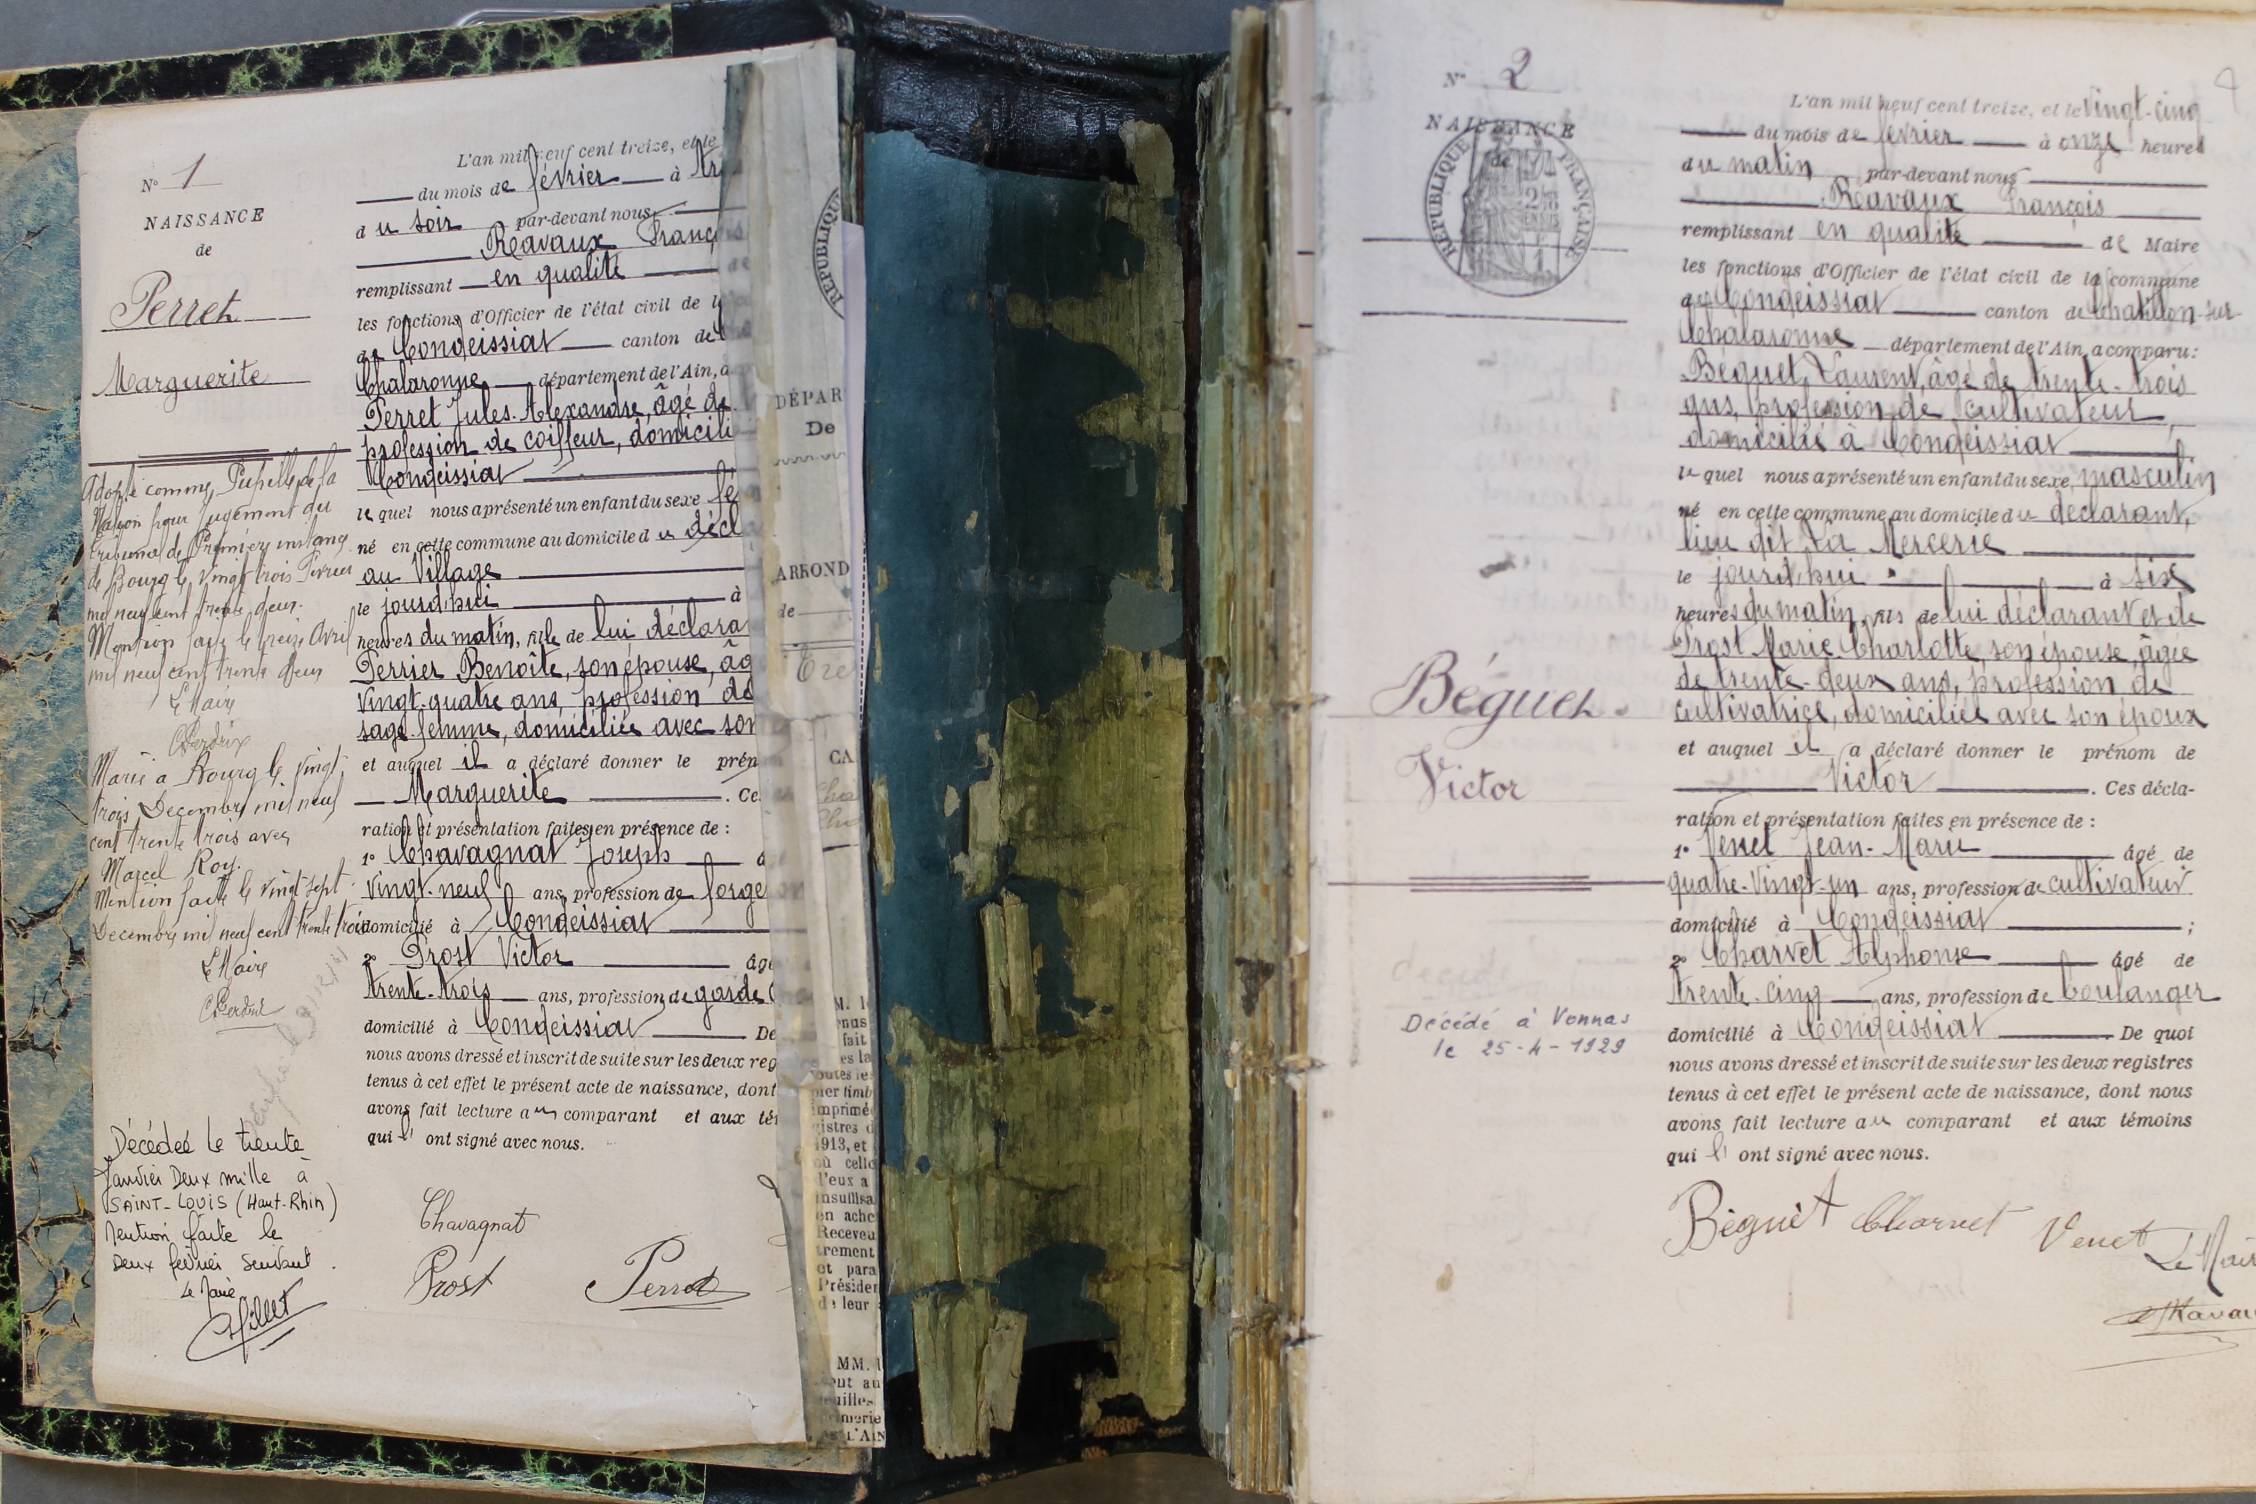 N° 1
NAISSANCE
de
Perret
Marguerite
Adopté comme Pupille de la
Nation par jugement du
tribunal de Première instance
de Bourg le vingt trois Février
mil neuf cent trente deux.
Mention faite le treize Avril
mil neuf cent trente deux
Le Maire
Marié à Bourg le vingt
trois Decembre mil neuf
cent trente trois avec
Marcel Roy.
Mention faite le vingt sept
Decembre mil neuf cent trente trois
Le Maire
Décédée le trente
Janvier Deux mille à
SAINT-LOUIS (Haut-Rhin)
Mention faite le
Deux février suivant.
Le Maire
L'an mil neuf cent treize, et le
du mois de février à
du soir par-devant nous
Ravaux
remplissant en qualité
les fonctions d'Officier de l'état civil de
de Condeissiat canton de
Chalaronne département de l'Ain, a
Perret Jules-Alexandre, âgé de
profession de coiffeur,
Condeissiat
lequel nous a présenté un enfant du sexe
né en cette commune au domicile du
au Village
le jourd'hui à
heures du matin, fille de lui
Perrier Benoîte, son épouse,
vingt-quatre ans, profession de
sage-femme, domiciliée avec son
et auquel il a déclaré donner le
Marguerite. Ces
ration et présentation faites en présence de :
1° Chavagnat Joseph
vingt-neuf ans, profession de
domicilié à Condeissiat
2° Prost Victor
trente-trois ans, profession de garde
domicilié à Condeissiat De
nous avons dressé et inscrit de suite sur les deux reg
tenus à cet effet le présent acte de naissance, dont
avons fait lecture au comparant et aux
qui l' ont signé avec nous.
Chavagnat
Prost Perret
RÉPUBLIQU
DÉPAR
De
ARROND
de
CA
N° 2
NAISSANCE
de
RÉPUBLIQUE FRANÇAISE
Béguet.
Victor
Décédé à Vonnas
le 25-4-1929
L'an mil neuf cent treize, et le vingt-cinq
du mois de février à onze heures
du matin par-devant nous
Ravaux François
remplissant en qualité de Maire
les fonctions d'Officier de l'état civil de la commune
de Condeissiat canton de Châtillon-sur-
Chalaronne département de l'Ain, a comparu :
Béguet, Laurent, âgé de trente-trois
ans, profession de cultivateur,
domicilié à Condeissiat
lequel nous a présenté un enfant du sexe masculin
né en cette commune au domicile du déclarant,
lieu dit La Mercerie
le jourd'hui à six
heures du matin, fils de lui déclarant et de
Prost Marie Charlotte, son épouse, âgée
de trente-deux ans, profession de
cultivatrice, domiciliée avec son époux
et auquel il a déclaré donner le prénom de
Victor. Ces décla-
ration et présentation faites en présence de :
1° Venet Jean-Marie âgé de
quatre-vingt-un ans, profession de cultivateur
domicilié à Condeissiat ;
2° Charvet Alphonse âgé de
trente-cinq ans, profession de boulanger
domicilié à Condeissiat De quoi
nous avons dressé et inscrit de suite sur les deux registres
tenus à cet effet le présent acte de naissance, dont nous
avons fait lecture au comparant et aux témoins
qui l' ont signé avec nous.
Béguet Charvet Venet